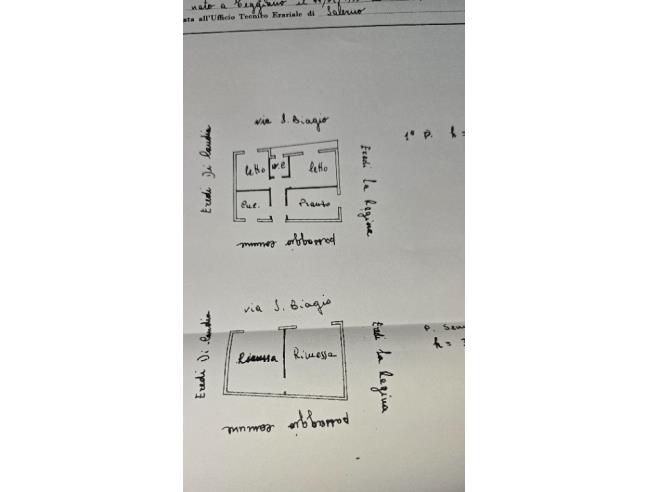 nato a Teggiano il
ata all'Ufficio Tecnico Erariale di Salerno
via S. Biagio
1° P. h=
Eredi Di Claudia
letto
w.c
letto
Eredi La Regina
Cuc.
Pranzo
passaggio comune
via S. Biagio
Eredi Di Claudia
Rimessa
Rimessa
Eredi La Regina
P. Sem
h=
passaggio
comune